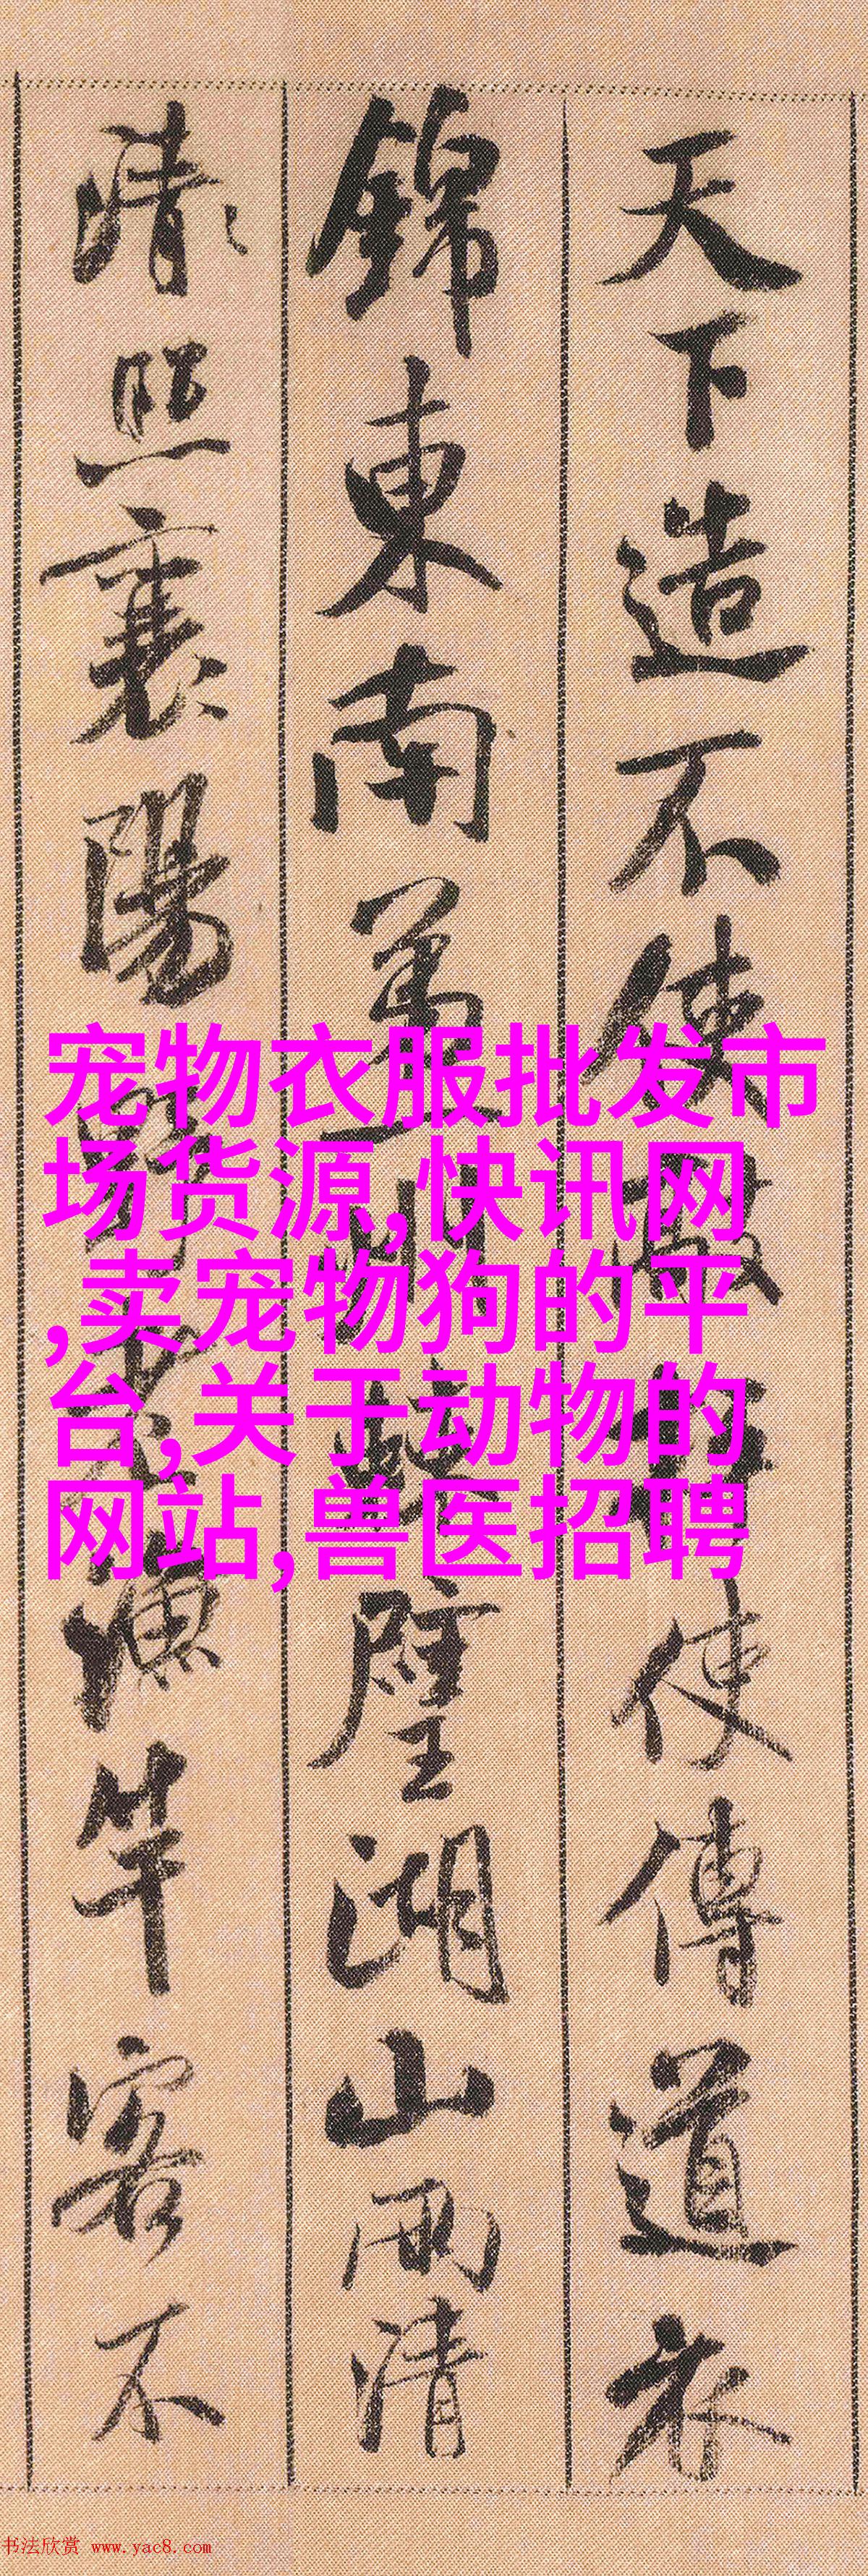 天下造不使
使傳道衣
錦東南第一州
壁湖山兩清
清照襄陽
漁竿客不
宠物衣服批发市
场货源,快讯网
,卖宠物狗的平
台,关于动物的
网站,兽医招聘
书法欣赏 www.yac8.com